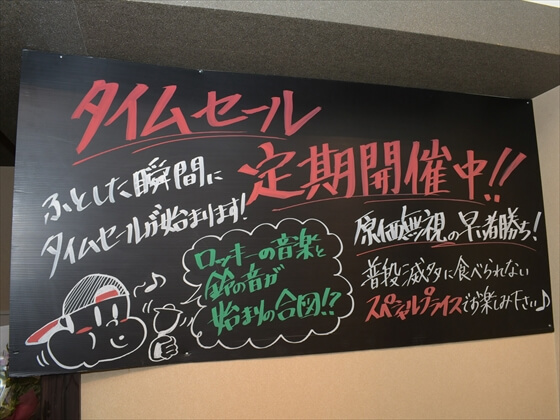 タイムセール
定期開催中!!
ふとした瞬間に
タイムセールが始まります!
ロッキーの音楽と
鈴の音が
始まりの合図!?
原価無視の早い者勝ち!
普段滅多に食べられない
スペシャルプライスでお楽しみ下さい♪